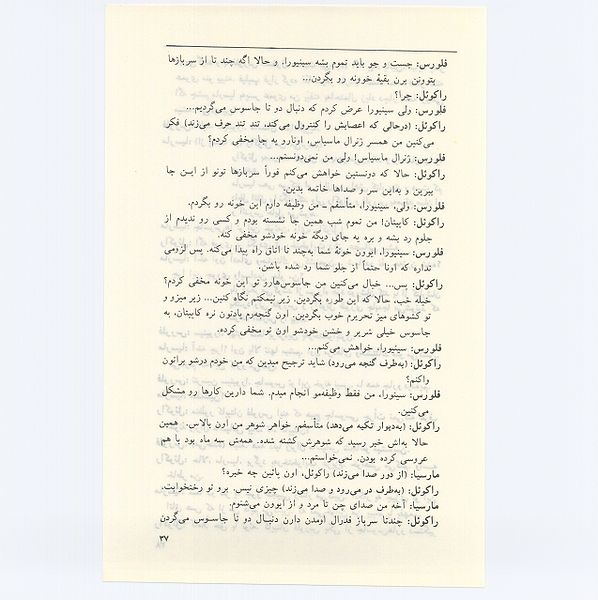 فلورس: جست و جو باید تموم بشه سینیورا، و حالا اگه چند تا از سربازها
بتوونن برن بقیهٔ خوونه رو بگردن...
راکوئل: چرا؟
فلورس: ولی سینیورا عرض کردم که دنبال دو تا جاسوس می‌گردیم...
راکوئل: (درحالی که اعصابش را کنترول می‌کند، تند تند حرف می‌زند) فکر
می‌کنین من همسر ژنرال ماسیاس، اونارو یه جا مخفی کردم؟
فلورس: ژنرال ماسیاس! ولی من نمی‌دونستم...
راکوئل: حالا که دونستین خواهش می‌کنم فوراً سربازها تونو از این جا
ببرین و به‌این سر و صداها خاتمه بدین.
فلورس: ولی، سینیورا، متأسفم ـ من وظیفه دارم این خونه رو بگردم.
راکوئل: کاپیتان! من تموم شب همین جا نشسته بودم و کسی رو ندیدم از
جلوم رد بشه و بره یه جای دیگهٔ خونه خودشو مخفی کنه.
فلورس: سینیورا، ایوون خونهٔ شما به‌چند تا اتاق راه پیدا می‌کنه. پس لزومی
نداره که اونا حتماً از جلو شما رد شده باشن.
راکوئل: پس... خیال می‌کنین من جاسوس‌هارو تو این خونه مخفی کردم؟
خیله خب، حالا که این طوره بگردین. زیر نیمکتم نگاه کنین... زیر میزو و
تو کشوهای میز تحریرم خوب بگردین. اون گنجه‌رم یادتون نره کاپیتان، یه
جاسوس خیلی شریر و خشن خودشو اون تو مخفی کرده.
فلورس: سینیورا، خواهش می‌کنم...
راکوئل: (به‌طرف گنجه می‌رود) شاید ترجیح میدین که من خودم درشو براتون
واکنم؟
فلورس: سینورا، من فقط وظیفه‌مو انجام میدم. شما دارین کارها رو مشکل
می‌کنین.
راکوئل: (به‌دیوار تکیه می‌دهد) متأسفم. خواهر شوهر من اون بالاس. همین
حالا به‌اش خبر رسید که شوهرش کشته شده. همه‌ش سه ماه بود با هم
عروسی کرده بودن. نمی‌خواستم...
مارسیا: (از دور صدا می‌زند) راکوئل، اون پائین چه خبره؟
راکوئل: (به‌طرف در می‌رود و صدا می‌زند) چیزی نیس. برو تو رختخوابت.
مارسیا: آخه من صدای چن تا مرد و از ایوون می‌شنوم.
راکوئل: چندتا سرباز فدرال اومدن دارن دنبال دو تا جاسوس می‌گردن
۳۷